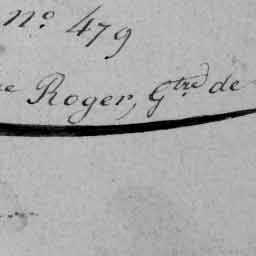 n.º 479
ue Roger, G.tre de